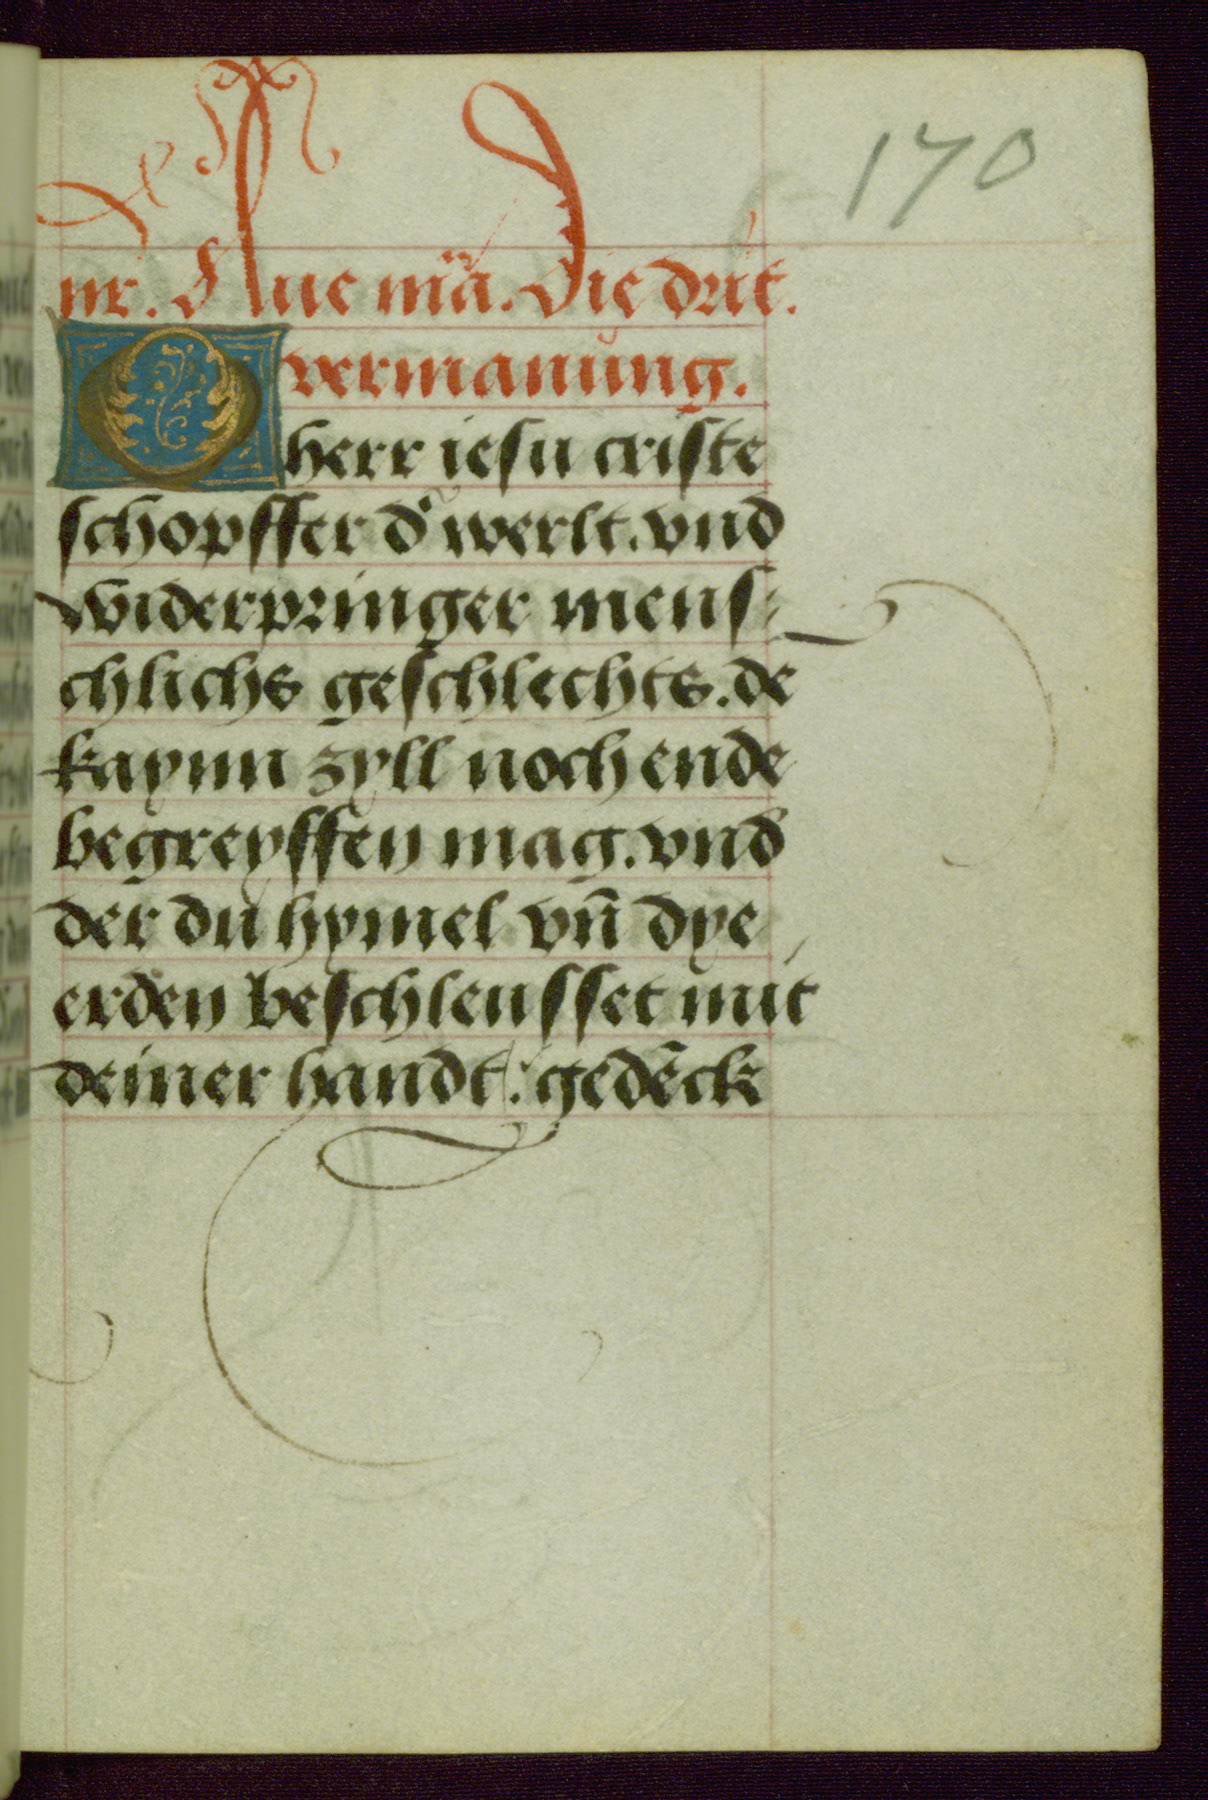 170
nr. Aue m̃a. Die drit.
vermanung.
O herr iesu criste
schopffer d' werlt. vnd
widerpringer mens-
chlichs geschlechts. de
kaynn zyll noch ende
begreyffen mag. vnd
der du hymel vn̄ dye
erden beschleusset mit
deiner handt. gedēck